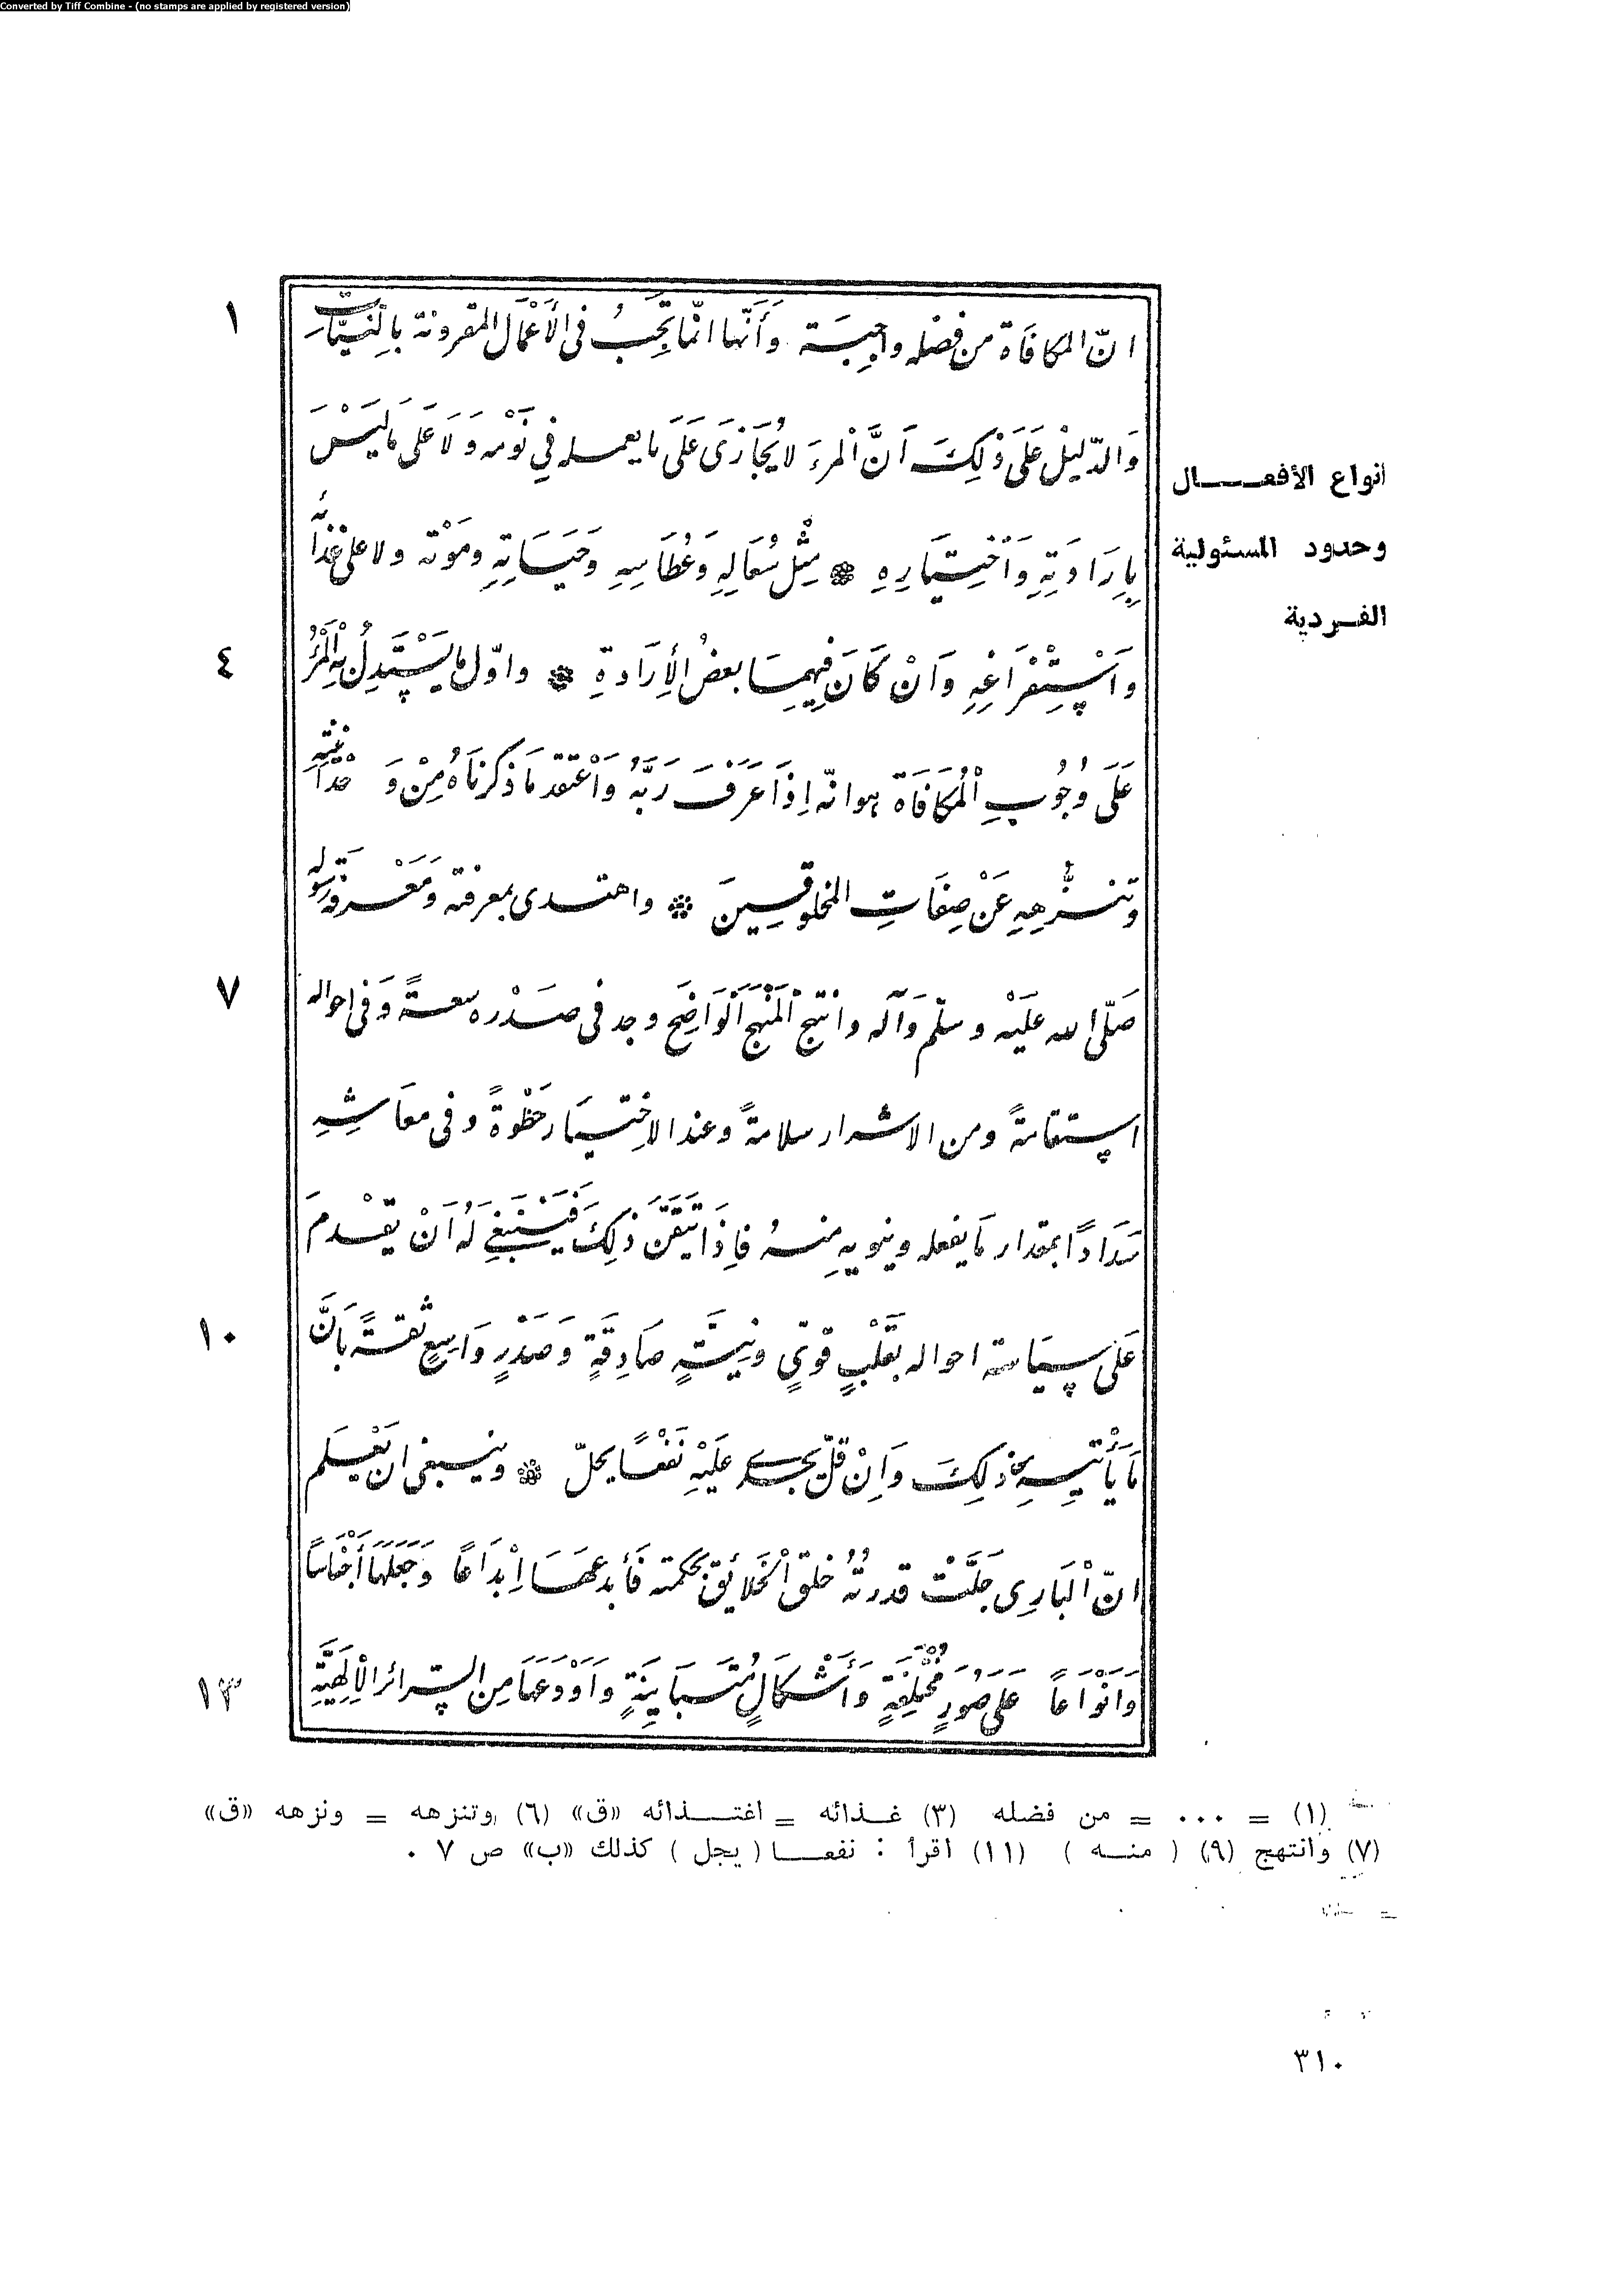 Converted by Tiff Combine - (no stamps are applied by registered version)
١
انّ المكافَاة من فضله واجِبَة وَأَنَّها انّما تَجِبُ فى الأَعْمَال المقرونة بالنِيَّات
وَالدّليْل عَلَى ذٰلِكَ اَنَّ الْمرءَ لا يُجَازَى عَلَى ما يعمله فِي نَوْمه وَلَا عَلى مَا لَيسَ
انواع الأفعـــال
بِاِرَادَتِهِ وَاَخْتِيَارِهِ مِثْل سُعَالِهِ وَعُطَاسِهِ وَحَيَاتِهِ وَمَوْته ولا على غذائه
وحدود المسئولية
الفـردية
٤
وَاَسْتِفْرَاغِهِ وَاَنْ كَانَ فِيهِمَا بعضُ الأِرَادةِ واوّل ما يَسْتَدِلُ بهِ الْمَرْءُ
عَلَى وُجُوبِ الْمُكَافَاة هوانّه اِذَا عَرَفَ رَبَّهُ وَاعْتقد مَا ذكرنَاهُ مِنْ وَحْدَانِيَّتِهِ
وتنزُّهِهِ عَنْ صِفَاتِ المخلوقِينَ واهتدى بمعرفته وَمَعْرفة رَسُوله
٧
صَلّى الله عَلَيْه وسلّم وَآله وانتهج الْمَنْهَج الْوَاضِحَ وجد فى صَدْره سعةً وَفى احواله
استقامةً ومن الاشرار سلامةً وعند الاختِيَار حَظْوةً وفى معَاشِهِ
سَدَادًا بمقدار مَا يفعله وينويه مِنهُ فاِذَا تَيَقَّنَ ذٰلِكَ فَيَنْبَغِى لَهُ اَنْ يقْدمَ
١٠
عَلَى سِيَاسة احواله بقَلْبٍ قوّىٍ ونِيَّةٍ صَادِقَةٍ وَصَدْرٍ وَاسِعٍ ثقةً بَانَّ
مَا يَأْتيهِ مِن ذٰلِكَ وَاِنْ قلّ يجدى عَلَيْهِ نَفْعًا يحلّ وينبغى ان يَعْلم
انّ الْبَارِى جَلَّتْ قدرتُهُ خلق الْخَلَائِق بحكمته فَأبدعهَا اِبْدَاعًا وَجَعَلَهَا أَجْنَاسًا
١٣
وَاَنْوَاعًا عَلى صُوَرٍ مُخْتَلِفَةٍ وَأَشْكَالٍ مُتَبَايِنَةٍ وَاَوْدَعَهَا مِن السّرائر الْاِلَهِيَّةِ
(١) = ٠٠٠ = من فضله (٣) غـذائه = اغتـــذائه «ق» (٦) وتنزهه = ونزهه «ق»
(٧) وانتهج (٩) ( منــه ) (١١) اقرأ : نفعــا ( يجل ) كذلك «ب» ص ٧ .
٣١٠